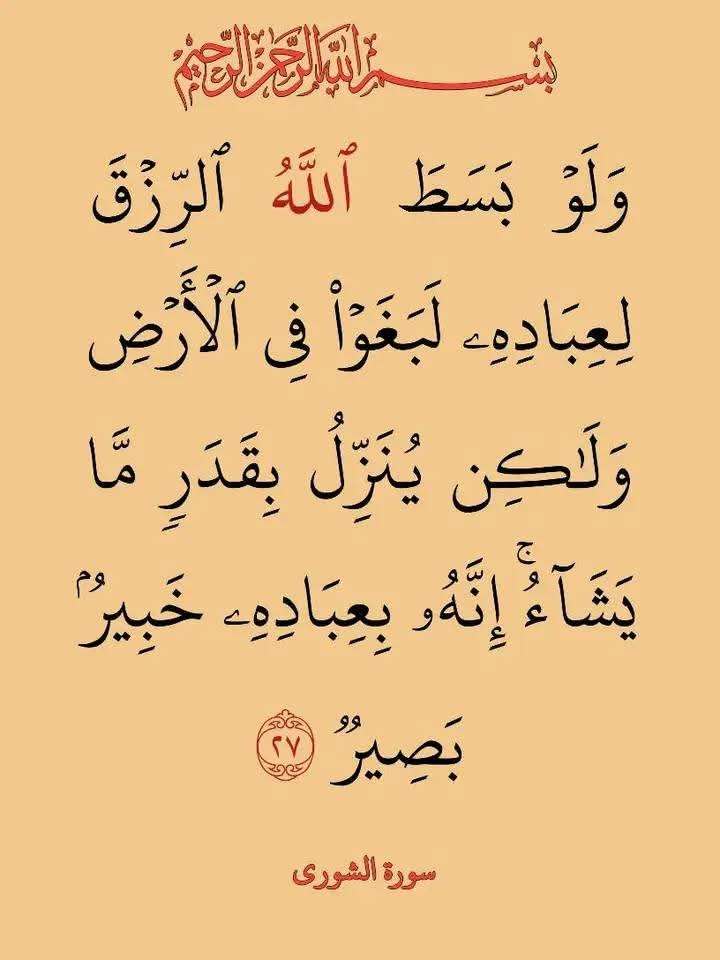 بسم الله الرحمن الرحيم
وَلَوۡ بَسَطَ ٱللَّهُ ٱلرِّزۡقَ
لِعِبَادِهِۦ لَبَغَوۡاْ فِي ٱلۡأَرۡضِ
وَلَٰكِن يُنَزِّلُ بِقَدَرٖ مَّا
يَشَآءُۚ إِنَّهُۥ بِعِبَادِهِۦ خَبِيرُۢ
بَصِيرٞ ٢٧
سورة الشورى